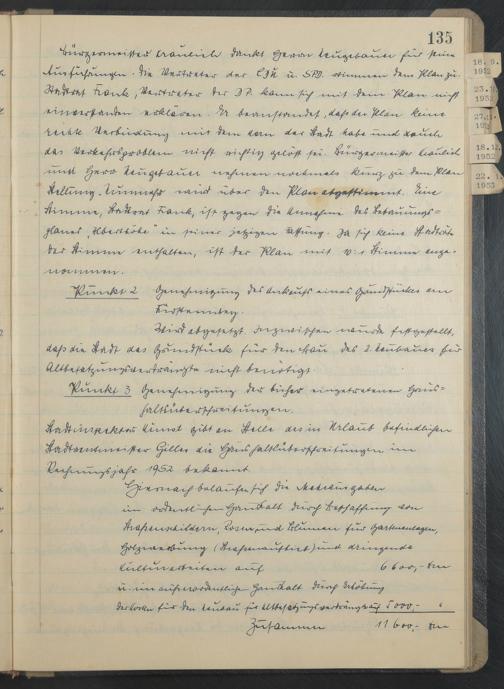 135
Bürgermeister Fräulich dankt Herrn Neugebauer für seine
Ausführungen. Die Vertreter der CSU u. SPD stimmen dem Plan zu.
Stadtrat Frank, Vertreter der I.P. kann sich mit dem Plan nicht
einverstanden erklären. Er beanstandet, daß der Plan keine
rechte Verbindung mit dem Kern der Stadt habe und auch
das Verkehrsproblem nicht richtig gelöst sei. Bürgermeister Fräulich
und Herr Neugebauer nehmen nochmals kurz zu dem Plan
Stellung. Nunmehr wird über den Plan abgestimmt. Eine
Stimme, Stadtrat Frank, ist gegen die Annahme des Bebauungs-
planes, in seiner jetzigen Fassung. Da sich keine Stadträte
der Stimme enthalten, ist der Plan mit Stimme ange-
nommen.
Punkt 2 Genehmigung des Ankaufs eines Grundstückes am
Wird abgesetzt. Inzwischen wurde festgestellt,
daß die Stadt das Grundstück für den Bau des 2. Neubauer für
Altbesatzungsverdrängte nicht benötigt.
Punkt 3 Genehmigung der bisher eingetretenen Haus-
haltüberschreitungen.
Stadtinspektor gibt an Stelle des in Urlaub befindlichen
Stadtamtmeister Gilles die Haushaltüberschreitungen im
Rechnungsjahr 1952 bekannt.
Hiernach belaufen sich die Mehrausgaben
im ordentlichen Haushalt durch Beschaffung von
Straßenschildern, Rosen und Blumen für Gartenanlagen,
Holzwerbung (Straßenaufhieb) und dringende
Kulturarbeiten auf 6 600,- DM
u. im außerordentlichen Haushalt durch Erhöhung
der Kosten für den Neubau für Altbesatzungsverdrängte auf 5 000,- "
Zusammen 11 600,- DM
18. 9.
1952
23.
195
27.
195
18.12.
1952
22. 1.
1953